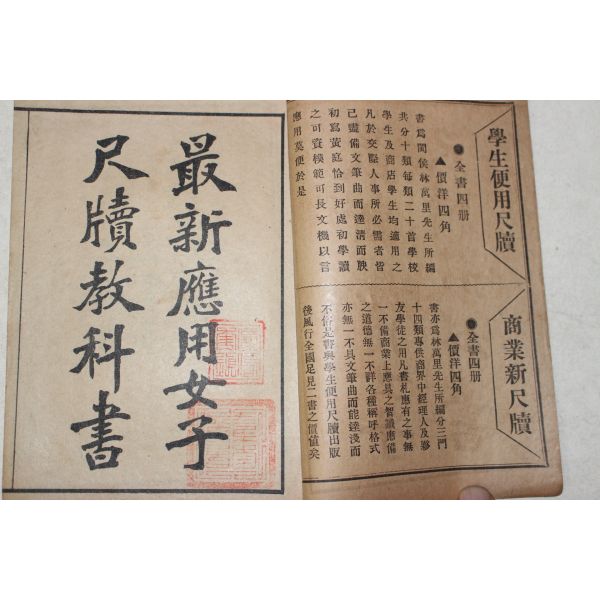 學生便用尺牘
●全書四册
▲價洋四角
書爲閩侯林萬里先生所編
共分十類每類二十首學校
學生及商店學生均適用之
凡於交際人事所必需者皆
己盡備文筆曲而達清而腴
初寫黃庭恰到好處初學讀
之可資模範可長文機以言
應用莫便於是
商業新尺牘
●全書四册
▲價洋四角
書亦爲林萬里先生所編分三門
十四類專供商界中經理人及夥
友學徒之用凡書札應有之事無
一不備商業上應具之智識應備
之道德無一不詳各種稱呼格式
亦無一不具文筆曲而能達淺而
不俗是書與學生便用尺牘出版
後風行全國足見二書之價值矣
最新應用女子
尺牘教科書